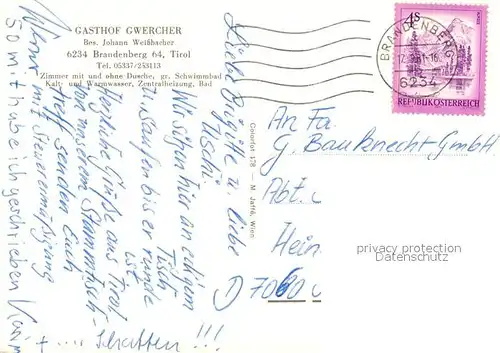 GASTHOF GWERCHER
Bes. Johann Weißbacher
6234 Brandenberg 64, Tirol
Tel. 05337/253113
Zimmer mit und ohne Dusche, gr. Schwimmbad
Kalt- und Warmwasser, Zentralheizung, Bad
Liebe Brigitte u. liebe
Uschi
Wir sitzen hier an eckigem
Tisch
U. saufen bis er runde
ist
Herzliche Grüße aus Tirol
von unserem Stammtisch-
treff senden Euch
mit Steuerermäßigung
so mit habe ich geschrieben
+ .... Schatten !!!
Colorfot 128 - M. Jaffé, Wien
4S
BRANDENBERG
6234
REPUBLIK ÖSTERREICH
An Fa.
G. Bauknecht GmbH
Abt.
Hein
D 7060
privacy protection
Datenschutz